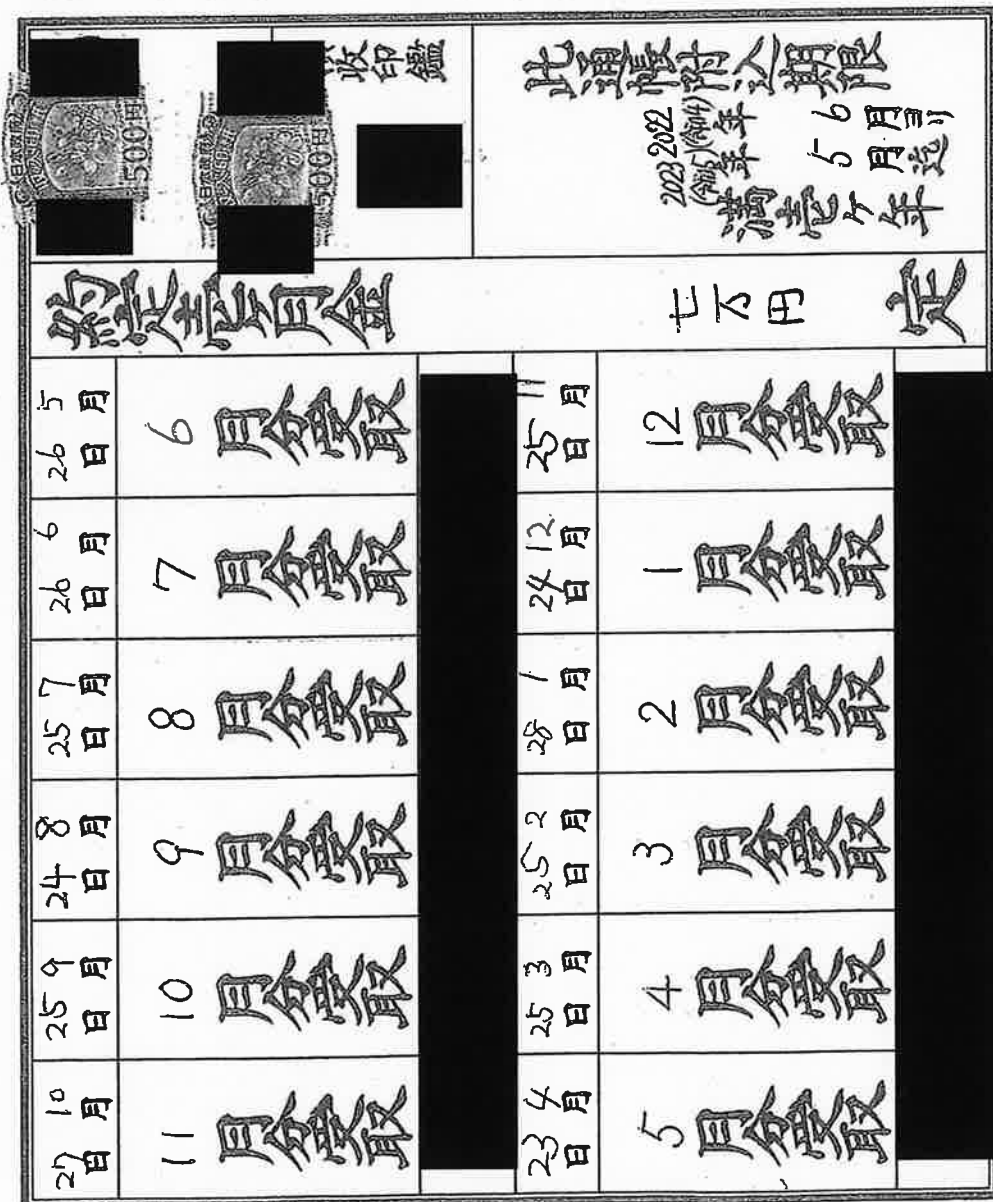 此通帳附込期限
2022(令和4)年6月ヨリ
2023(令和5)年5月迄
満壱ヶ年
収印鑑
500円
500円
約定壱ヶ月金 七万円 定
5月26日 6月分受取
6月26日 7月分受取
7月25日 8月分受取
8月24日 9月分受取
9月25日 10月分受取
10月27日 11月分受取
11月25日 12月分受取
12月24日 1月分受取
1月28日 2月分受取
2月25日 3月分受取
3月25日 4月分受取
4月23日 5月分受取